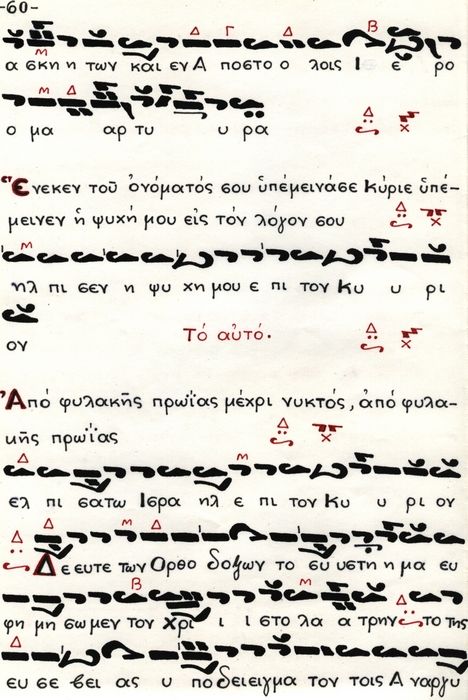 -60-
α σκη η των και εν Α ποστο ο λοις Ι ε ε ρο
ο μα αρ τυ υ ρα
Ἕνεκεν τοῦ ὀνόματός σου ὑπέμεινάσε Κύριε ὑπέ-
μεινεν ἡ ψυχή μου εἰς τόν λόγον σου
ηλ πι σεν η ψυ χη μου ε πι τον Κυ υ ρι
ον Τό αὐτό.
Ἀπό φυλακῆς πρωΐας μέχρι νυκτός, ἀπό φυλα-
κῆς πρωΐας
ελ πι σατω Ισρα ηλ ε πι τον Κυ υ ρι ον
Δε ευτε των Ορθο δοξων το συ υστη η μα ευ
φη μη σω μεν τον χρι ι ι στο λα α τρην το της
ευ σε βει ας υ πο δειειγμα τον τοις Α ναργυ